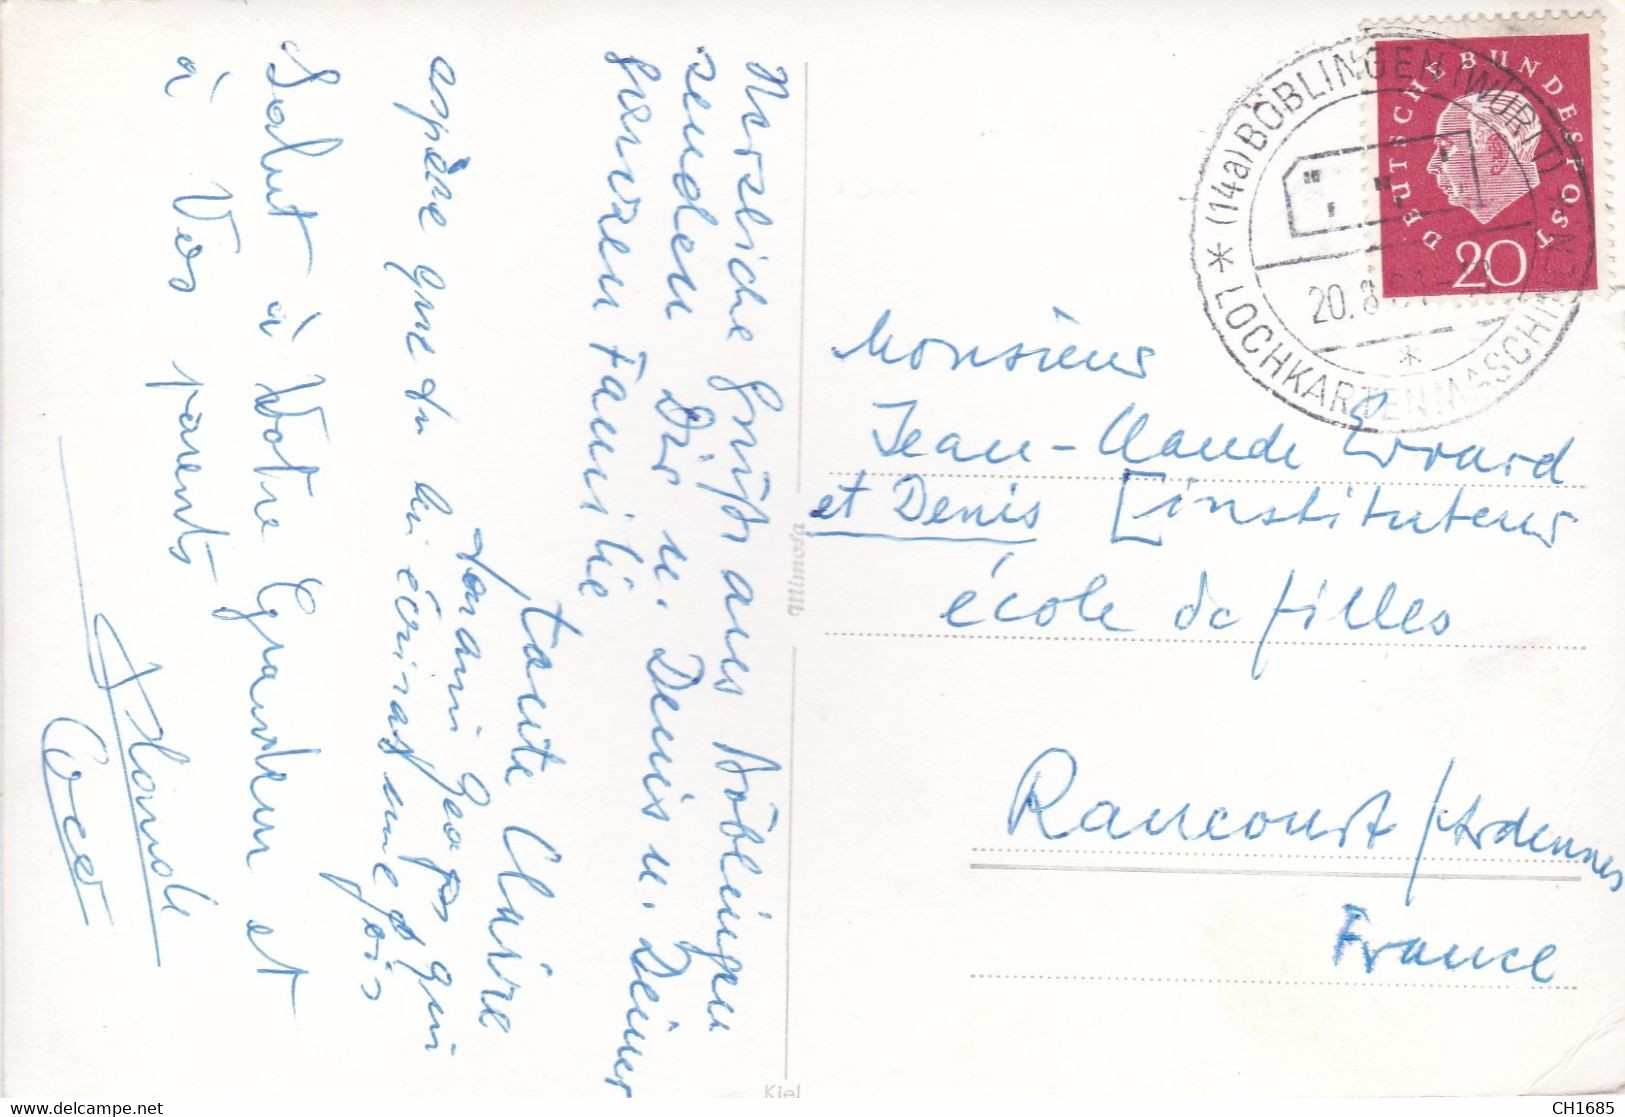 Herzliche Grüße aus Böblingen
senden Dir u. Denis u. Deiner
ganzen Familie
tante Claire
ton ami Georges qui
espère que tu lui écriras une fois
Salut à Votre Grandem et
à Vos parents
Coco
Kiel
DEUTSCHE BUNDESPOST
20
* (14a) BÖBLINGEN (WÜRTT)
LOCHKARTENMASCHINEN
20.8.
*
Monsieur
Jean-Claude Errard
et Denis [instituteur
école de filles
Raucourt/Ardennes
France
CH1685